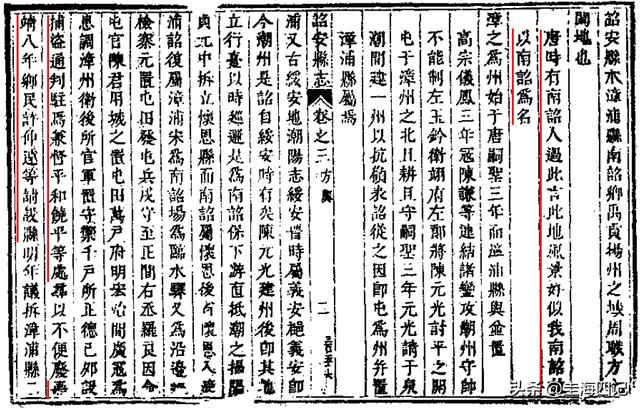 詔安縣本漳浦縣南詔鄉禹貢揚州之域周職方
閩地也
唐時有南詔人過此言此地風景好似我南詔
以南詔爲名
漳之爲州始于唐嗣聖三年而漳浦縣與並置
高宗儀鳳三年寇陳謙等連結諸蠻攻潮州守帥
不能制左玉鈐衛翊府左郎將陳元光討平之開
屯于漳州之北且耕且守嗣聖三年元光請于泉
潮間建一州以抗嶺表詔從之因即屯爲州并置
漳浦縣屬焉
詔安縣志
卷之三
方輿
二
浦又古綏安地潮陽志綏安晉時屬義安綏義安即
今潮州是詔自綏安時有矣陳元光建州後即其地
立行臺以時巡邏是爲南詔保下游直抵潮之揭陽
貞元中拆立懷恩縣而南詔屬懷恩後省懷恩入漳
浦詔復屬漳浦宋爲南詔場爲臨水驛又爲沿邊
檢寨元置屯田發屯兵戍守至正間右丞羅良因命
屯官陳君用城之置屯田萬戶府明宏治間廣寇爲
患調漳州衛後所官軍置守禦千戶所正德己卯設
捕盜通判駐焉兼督平和饒平等處尋以不便廢嘉
靖八年鄉民許仲遠等請設縣明年議拆漳浦縣二
头条@羊海四记